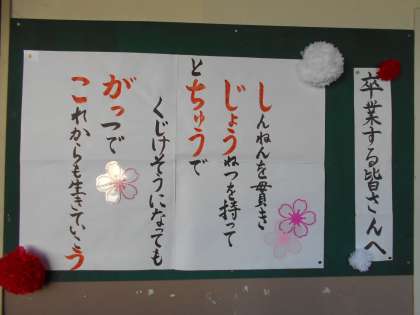 卒業する皆さんへ
しんねんを貫き
じょうねつを持って
とちゅうで
くじけそうになっても
がっつで
これからも生きていこう